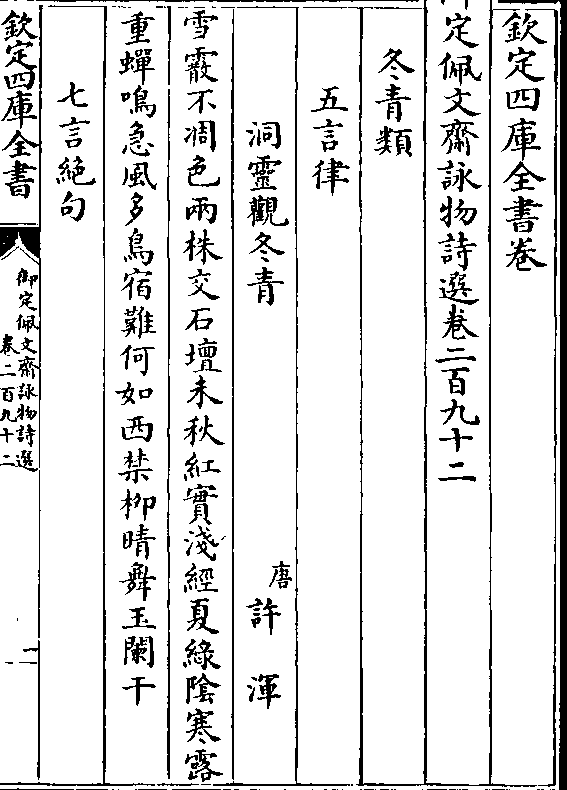 欽定四庫全書卷
定佩文齋詠物詩選卷二百九十二
冬青類
五言律
洞靈觀冬青
唐許渾
雪霰不凋色兩株交石壇未秋紅實淺經夏綠陰寒露
重蟬鳴急風多鳥宿難何如西禁柳晴舞玉闌干
七言絕句
欽定四庫全書
御定佩文齋詠物詩選
卷二百九十二
一